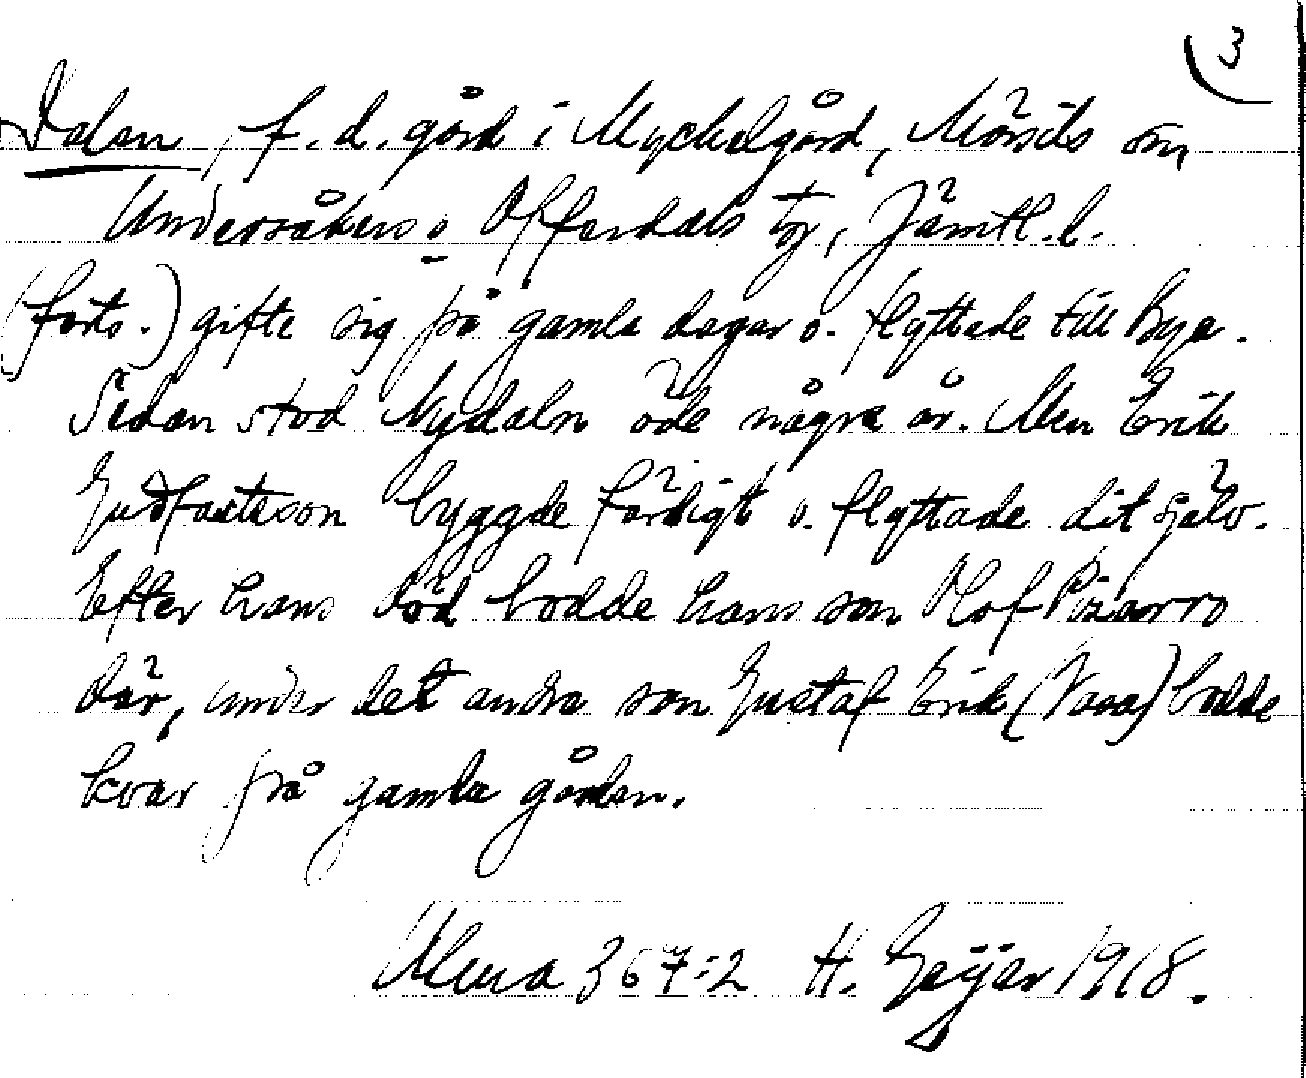 3
Dalen, f. d. gård i Myckelgård, Mörsils sn,
Undersåkers o Offerdals tg, Jämtl. l.
(forts.) gifte sig på gamla dagar o. flyttade till Bye.
Sedan stod Nydaln öde några år. Men Erik
Gudfastsson byggde färdigt o. flyttade dit själv.
Efter hans död bodde hans son Olof Pizarro
där, under det andra son Gustaf Erik (Vasa) bodde
kvar på gamla gården.
Alma 367:2 H. Geijer 1918.